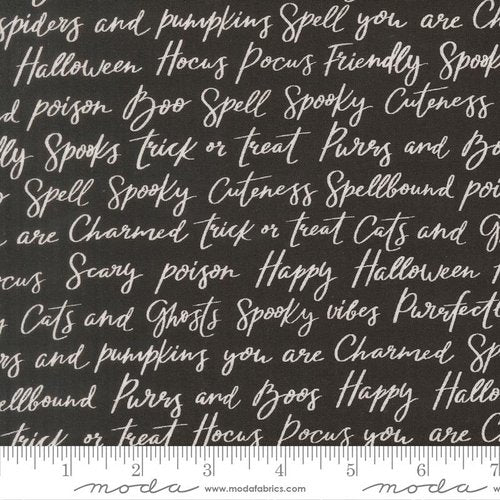 spiders and pumpkins Spell you are C
Halloween Hocus Pocus Friendly Spook
d poison Boo Spell Spooky Cuteness
lly Spooks trick or treat Purrs and Bo
Spell Spooky Cuteness Spellbound poi
are Charmed trick or treat Cats and G
ocus Scary poison Happy Halloween
y Cats and Ghosts Spooky vibes Purrfectl
rs and pumpkins you are Charmed Sp
ellbound Purrs and Boos Happy Hallo
trick or treat Hocus Pocus you are C
1 2 3 4 5 6 7
moda www.modafabrics.com moda